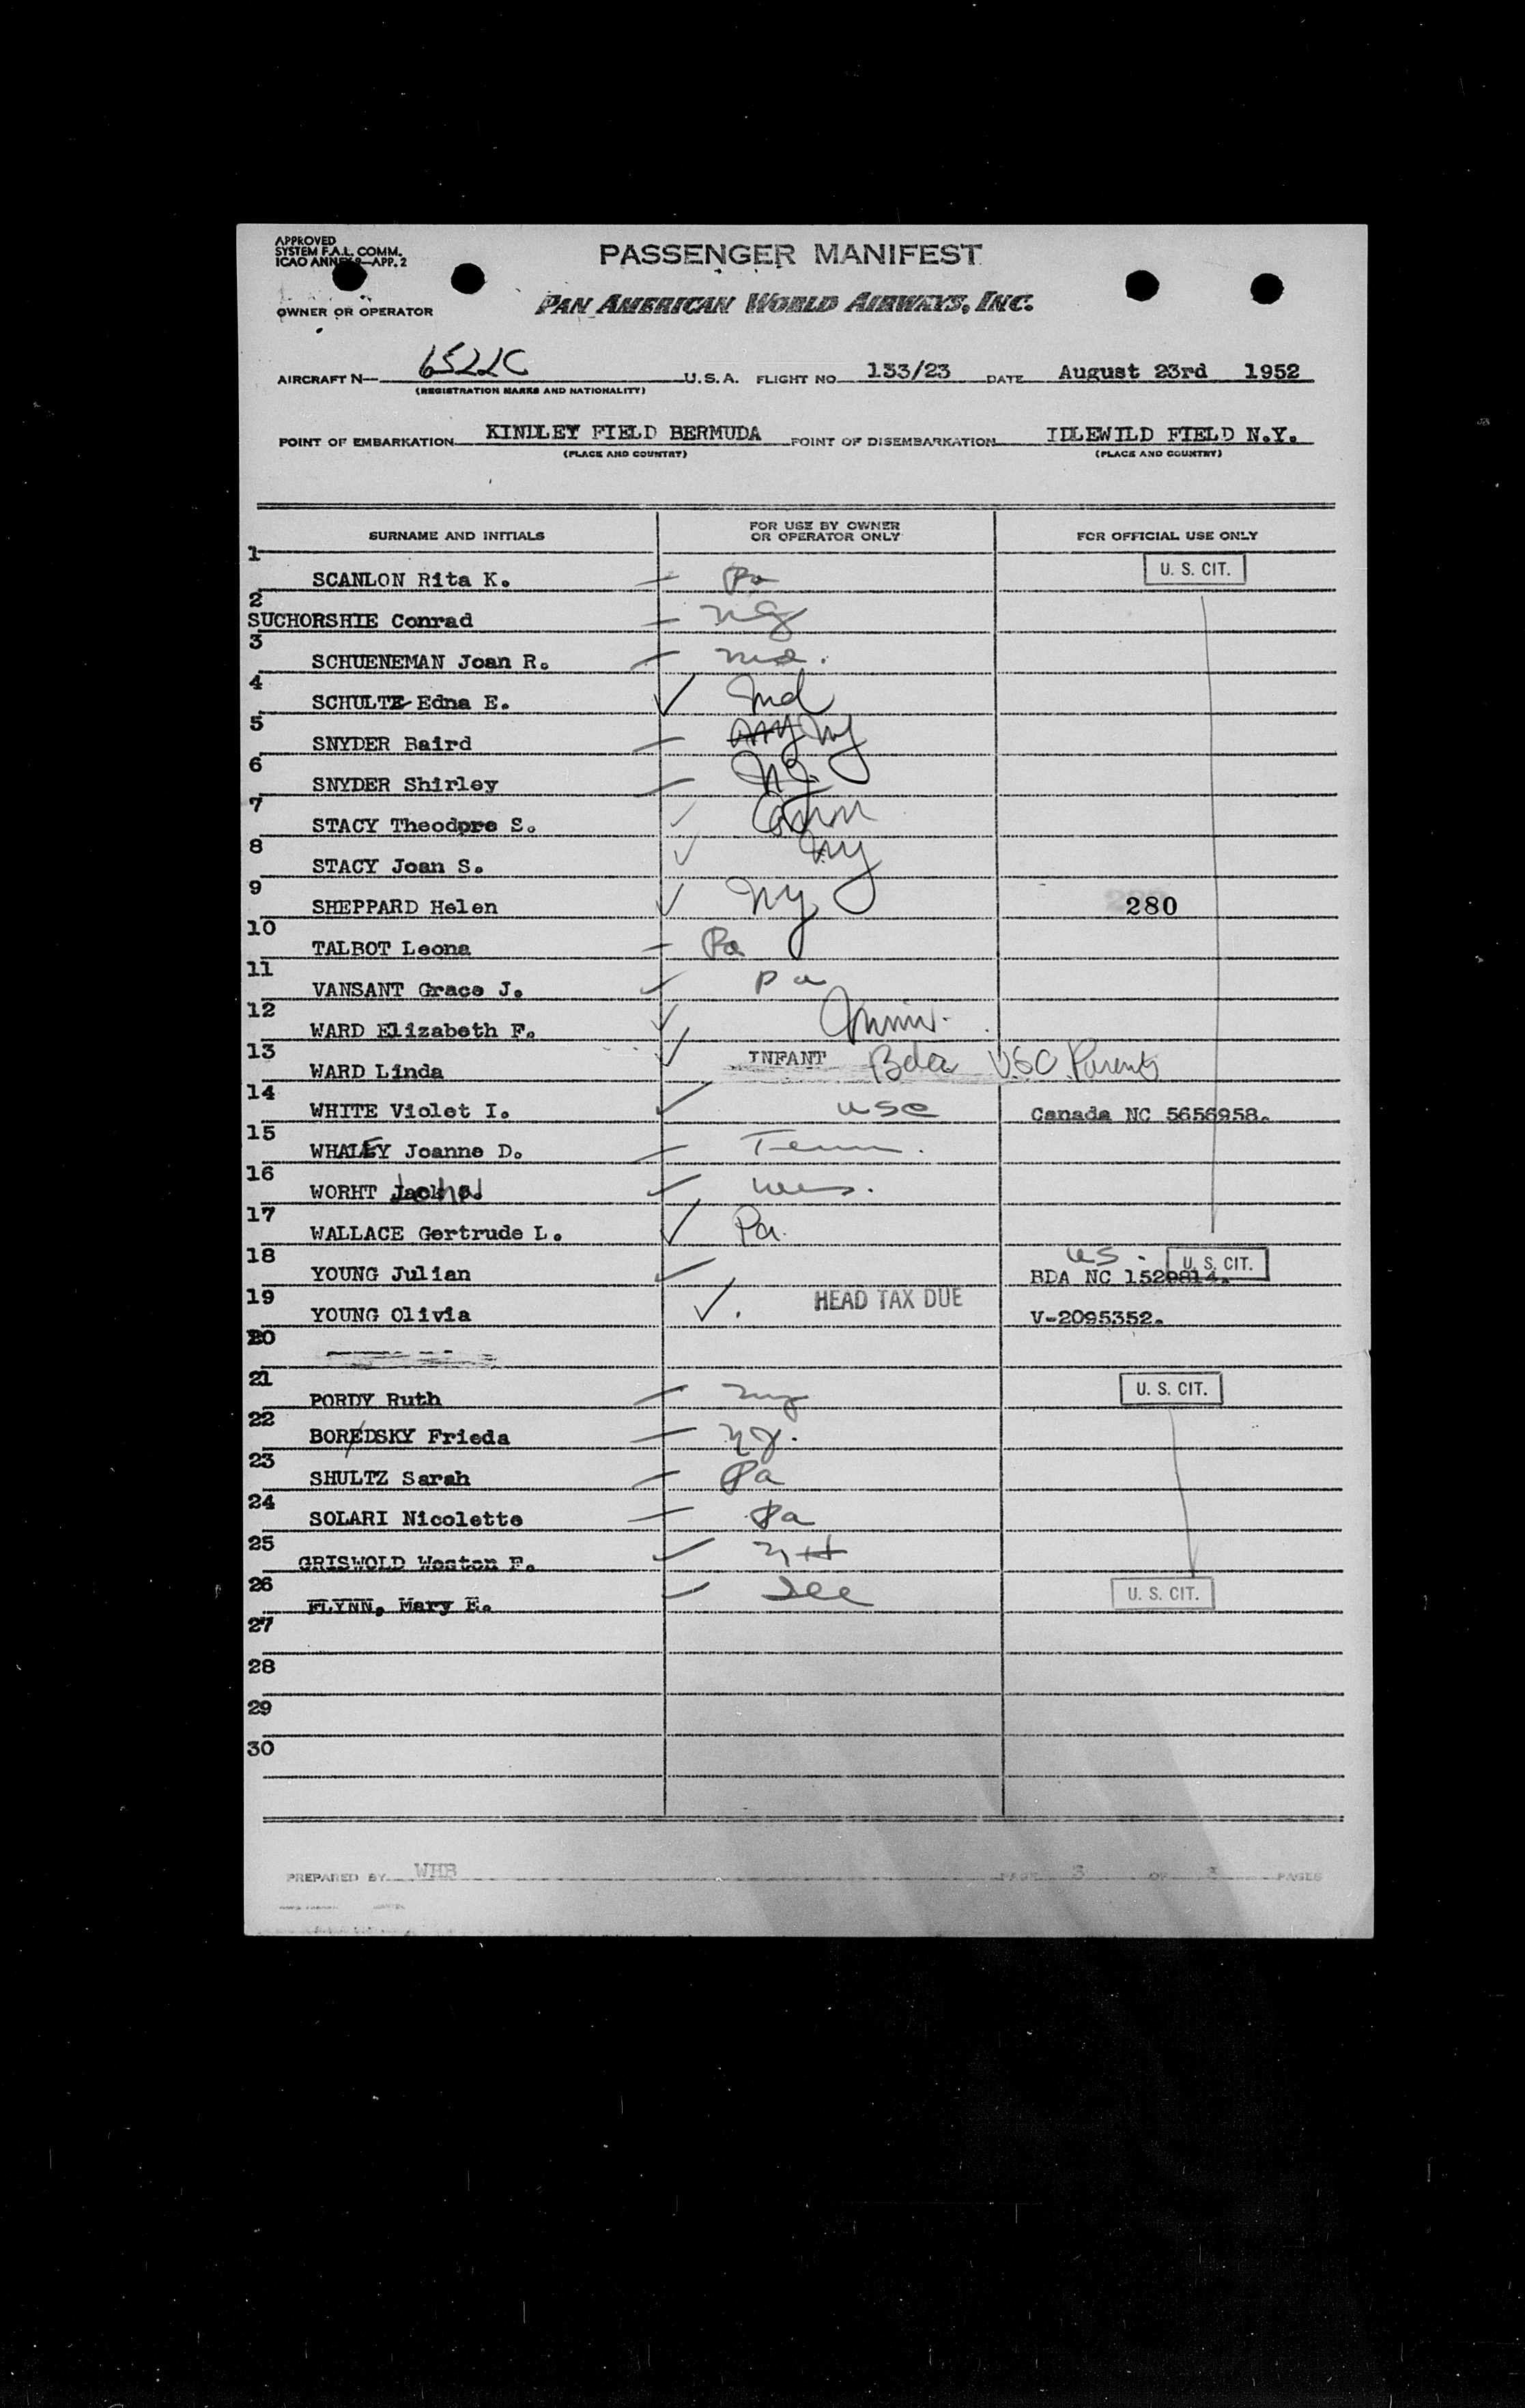 APPROVED
SYSTEM F.A.L. COMM.
ICAO ANNEX 9—APP. 2
PASSENGER MANIFEST
OWNER OR OPERATOR PAN AMERICAN WORLD AIRWAYS, INC.
AIRCRAFT N— 6522C U.S.A. FLIGHT NO. 153/23 DATE August 23rd 1952
(REGISTRATION MARKS AND NATIONALITY)
POINT OF EMBARKATION KINDLEY FIELD BERMUDA POINT OF DISEMBARKATION IDLEWILD FIELD N.Y.
(PLACE AND COUNTRY) (PLACE AND COUNTRY)
SURNAME AND INITIALS FOR USE BY OWNER OR OPERATOR ONLY FOR OFFICIAL USE ONLY
1 SCANLON Rita K. Pa U. S. CIT.
2 SUCHORSHIE Conrad
3 SCHUENEMAN Joan R.
4 SCHULTE Edna E. Ind
5 SNYDER Baird NY
6 SNYDER Shirley NJ.
7 STACY Theodore S. Conn
8 STACY Joan S. NY
9 SHEPPARD Helen NY 280
10 TALBOT Leona Pa
11 VANSANT Grace J. Pa
12 WARD Elizabeth F. Minn.
13 WARD Linda INFANT Bda USC Parents
14 WHITE Violet I. USC Canada NC 5656958.
15 WHALEY Joanne D. Tenn.
16 WORHT
17 WALLACE Gertrude L. Pa.
18 YOUNG Julian US. U. S. CIT.
BDA NC 1520814.
19 YOUNG Olivia HEAD TAX DUE V-2095352.
20
21 PORDY Ruth NY U. S. CIT.
22 BOREDSKY Frieda NJ.
23 SHULTZ Sarah Pa
24 SOLARI Nicolette Pa
25 GRISWOLD Weston F. NH
26 FLYNN, Mary E. Ill U. S. CIT.
27
28
29
30
PREPARED BY WHB PAGE 3 OF 3 PAGES